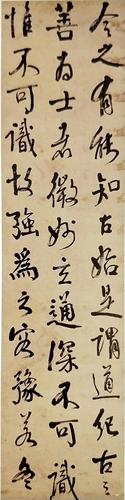 今之有能知古始是謂道紀古之
善為士者微妙玄通深不可識夫
惟不可識故強為之容豫若冬